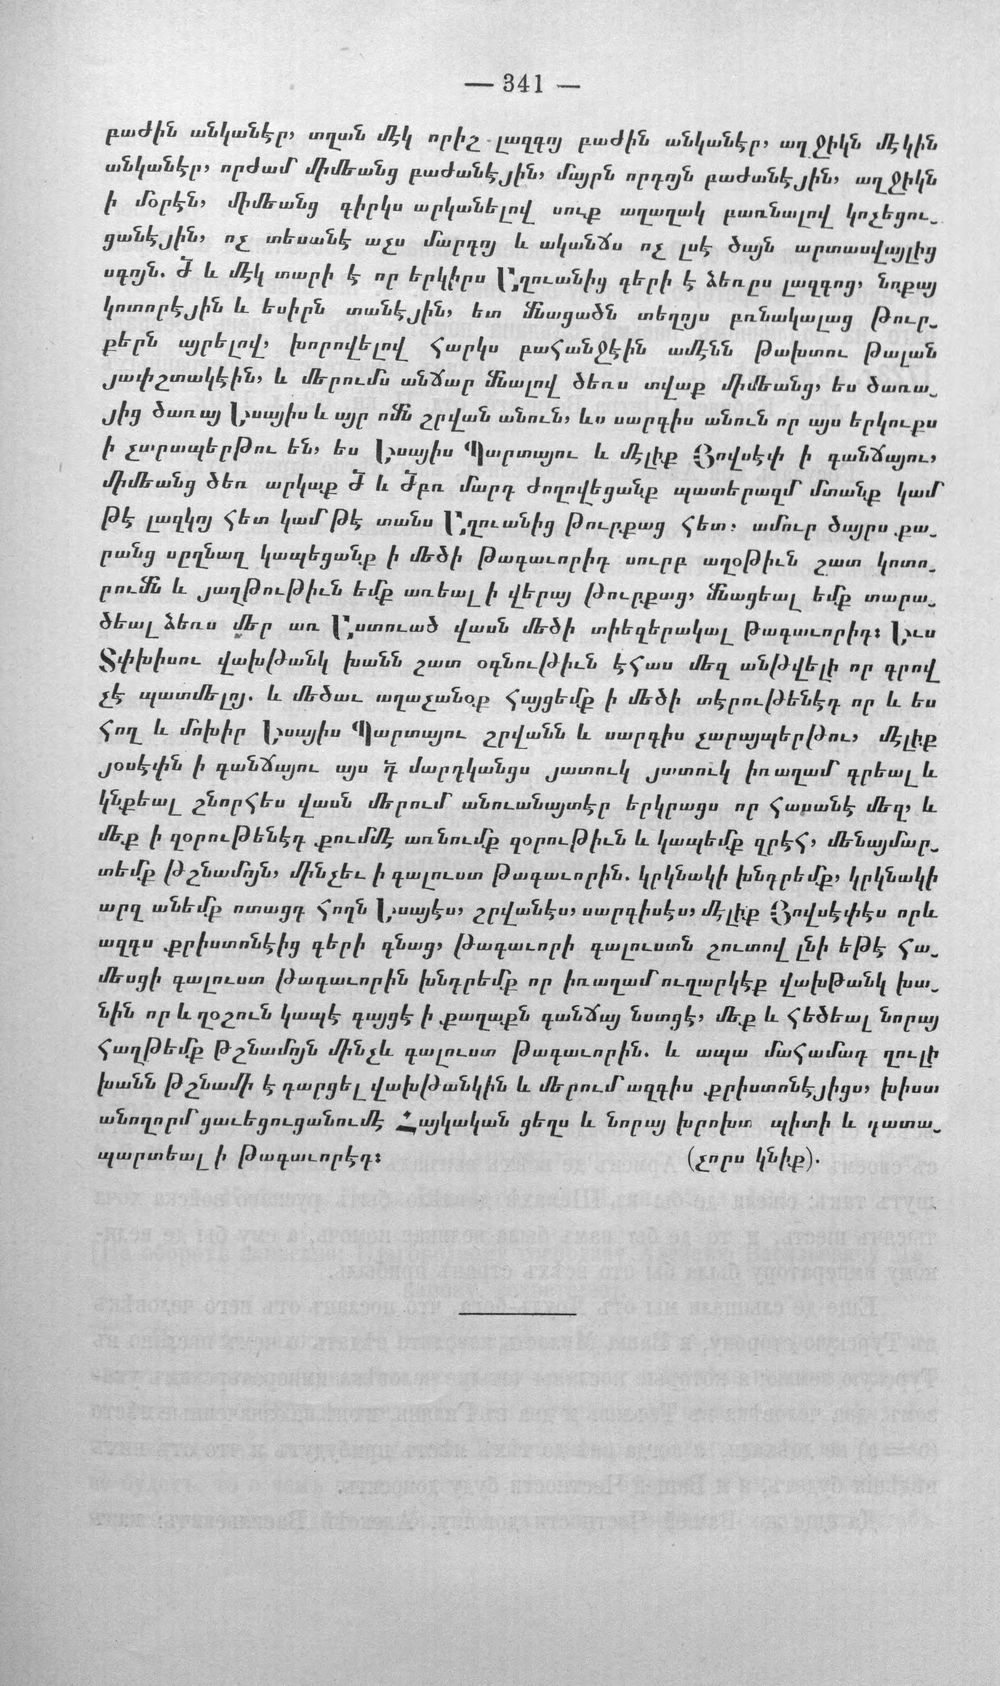 — 341 —
բաժին անկանէր, տղան մէկ որիշ լազգոյ բաժին անկանէր, աղջիկն մէկին
անկանէր, որժամ միմեանց բաժանէյին, մայրն որդոյն բաժանէյին, աղջիկն
ի մօրէն, միմեանց գիրկս արկանելով սուք աղաղակ բառնալով կոչեցու֊
ցանէյին, ոչ տեսանէ աչս մարդոյ և ականճս ոչ լսէ ծայն արտասվալից
սգոյն. Ճ և մէկ տարի է որ երկիրս Աղուանից գերի է ձեռըս լազգոց, նոքայ
կոտորէյին և եսիրն տանէյին, ետ մնացածն տեղոյս բռնակալաց թուր֊
քերն այրելով, խորովելով հարկս բահանջէին ամէնն թախտու թալան
յափշտակէին, և մերումս անճար մնալով ծեռս տվաք միմեանց, ես ծառա֊
յից ծառայ Եսայիս և այր ոմն շրվան անուն, ևս սարդիս անուն որ այս երկուքս
ի չարապերթու են, ես Եսայիս Պարտայու և մէլիք Յովսէփ ի գանճայու,
միմեանց ծեռ արկաք Ճ և Ճբռ մարդ ժողովեցանք պատերազմ մտանք կամ
թէ լազկոյ հետ կամ թէ տանս Աղուանից թուրքաց հետ. ամուր ծայրս քա֊
րանց սըղնաղ կապեցանք ի մեծի թագաւորիդ սուրբ աղօթիւն շատ կոտո֊
րումն և յաղթութիւն եմք առեալ ի վերայ թուրքաց, մնացեալ եմք տարա֊
ծեալ ձեռս մեր առ Աստուած վասն մեծի տիեզերակալ թագաւորիդ։ Եւս
Տփխիսու վախթանկ խանն շատ օգնութիւն էհաս մեզ անթվելի որ գրով
չէ պատմելոյ. և մեծաւ աղաչանօք հայցեմք ի մեծի տէրութենէդ որ և ես
հող և մոխիր Եսայիս Պարտայու շրվանն և սարգիս չարայպերթու, մէլիք
յօսէփն ի գանճայու այս դ մարդկանցս յատուկ յատուկ խռաղամ գրեալ և
կնքեալ շնորհես վասն մերում անուանայտէր երկրացս որ հասանէ մեզ, և
մեք ի զօրութենէդ քումմէ առնումք զօրութիւն և կապեմք զրէհ, մենայմար֊
տեմք թշնամոյն, մինչեւ ի գալուստ թագաւորին. կրկնակի խնդրեմք, կրկնակի
արզ անեմք ոտացդ հողն Եսայէս, շրվանէս, սարդիսէս, մէլիք Յովսէփէս որև
ազդս քրիստոնէից գերի գնաց, թագաւորի գալուստն շուտով լնի եթէ հա֊
մեսցի գալուստ թագաւորին խնդրեմք որ խռաղամ ուղարկէք վախթանկ խա֊
նին որ և ղօշուն կապէ գայցէ ի քաղաքն գանճայ նստցէ, մեք և հեծեալ նորայ
հաղթեմք թշնամոյն մինչև գալուստ թագաւորին. և ապա մահամադ ղուլի
խանն թշնամի է դարցել վախթանկին և մերում ազգիս քրիստոնէյիցս, խիստ
անողորմ ցաւեցուցանումէ Հայկական ցեղս և նորայ խրոխտ պիտի և դատա֊
պարտեալ ի թագաւորէդ։
(չորս կնիք).